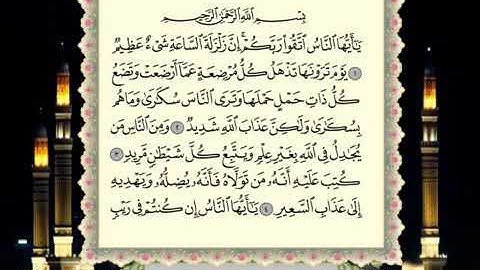 بِسْمِ اللَّهِ الرَّحْمَٰنِ الرَّحِيمِ
يَا أَيُّهَا النَّاسُ اتَّقُوا رَبَّكُمْ ۚ إِنَّ زَلْزَلَةَ السَّاعَةِ شَيْءٌ عَظِيمٌ
١ يَوْمَ تَرَوْنَهَا تَذْهَلُ كُلُّ مُرْضِعَةٍ عَمَّا أَرْضَعَتْ وَتَضَعُ
كُلُّ ذَاتِ حَمْلٍ حَمْلَهَا وَتَرَى النَّاسَ سُكَٰرَىٰ وَمَا هُم
بِسُكَٰرَىٰ وَلَٰكِنَّ عَذَابَ اللَّهِ شَدِيدٌ ٢ وَمِنَ النَّاسِ مَن
يُجَٰدِلُ فِي اللَّهِ بِغَيْرِ عِلْمٍ وَيَتَّبِعُ كُلَّ شَيْطَٰنٍ مَّرِيدٍ ٣
كُتِبَ عَلَيْهِ أَنَّهُ مَن تَوَلَّاهُ فَأَنَّهُ يُضِلُّهُ وَيَهْدِيهِ
إِلَىٰ عَذَابِ السَّعِيرِ ٤ يَا أَيُّهَا النَّاسُ إِن كُنتُمْ فِي رَيْبٍ